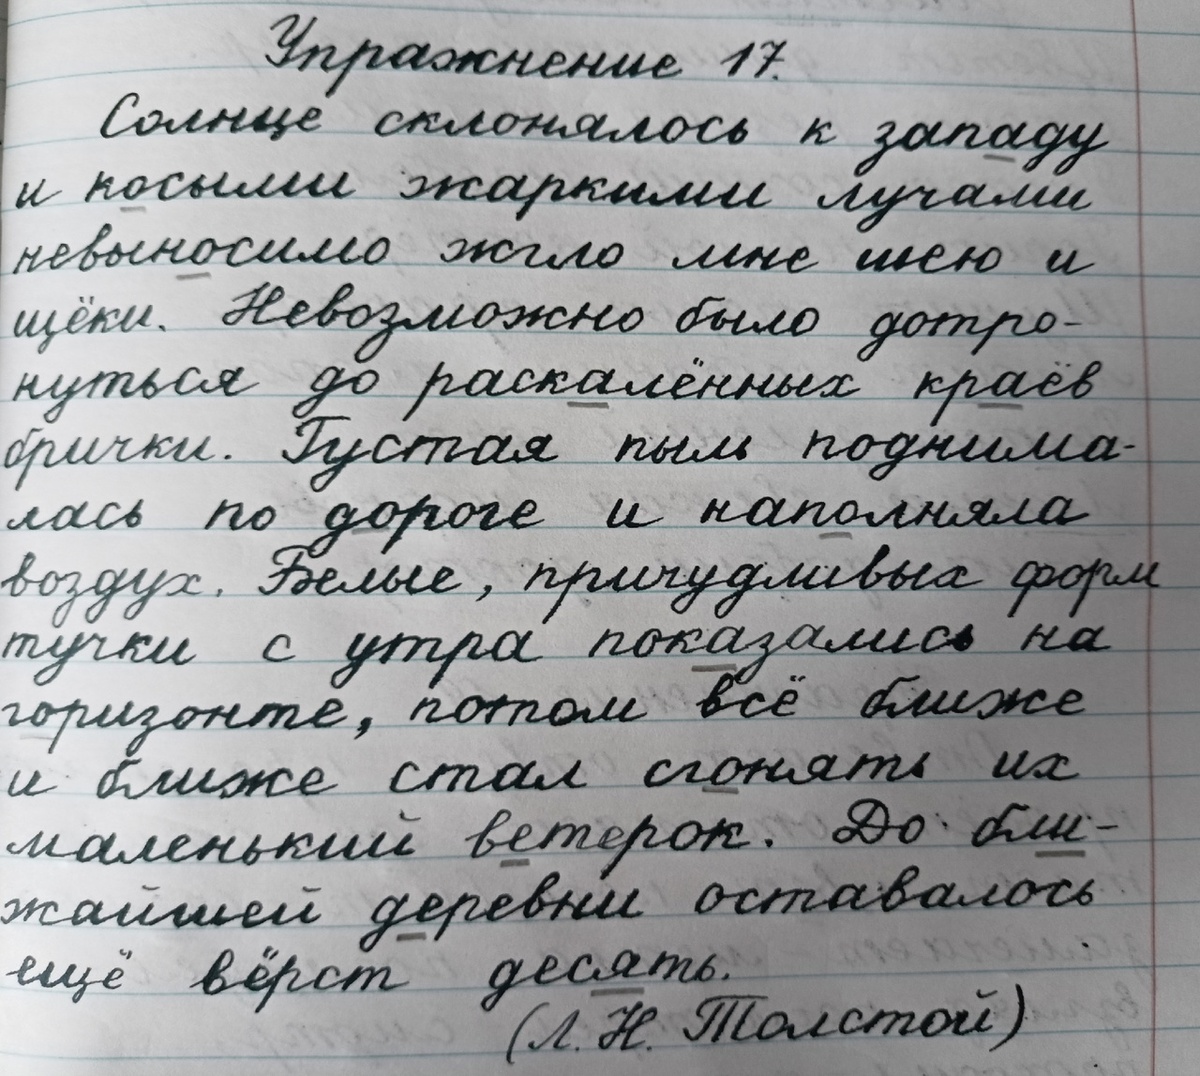 Упражнение 17.
Солнце склонялось к западу
и косыми жаркими лучами
невыносимо жгло мне шею и
щёки. Невозможно было дотро-
нуться до раскалённых краёв
брички. Густая пыль поднима-
лась по дороге и наполняла
воздух. Белые, причудливых форм
тучки с утра показались на
горизонте, потом всё ближе
и ближе стал сгонять их
маленький ветерок. До бли-
жайшей деревни оставалось
ещё вёрст десять.
(Л. Н. Толстой)